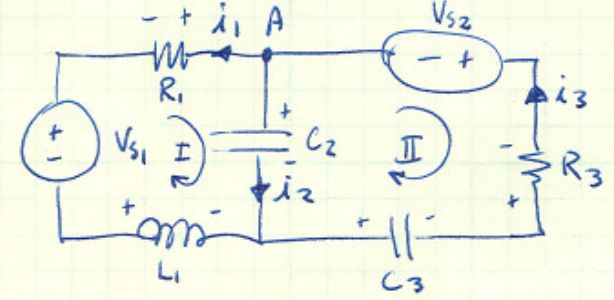 - + i₁ A Vs₂
- +
R₁ i₃
+ - Vs₁ I + - C₂ II - + R₃
i₂
+ - + -
L₁ C₃